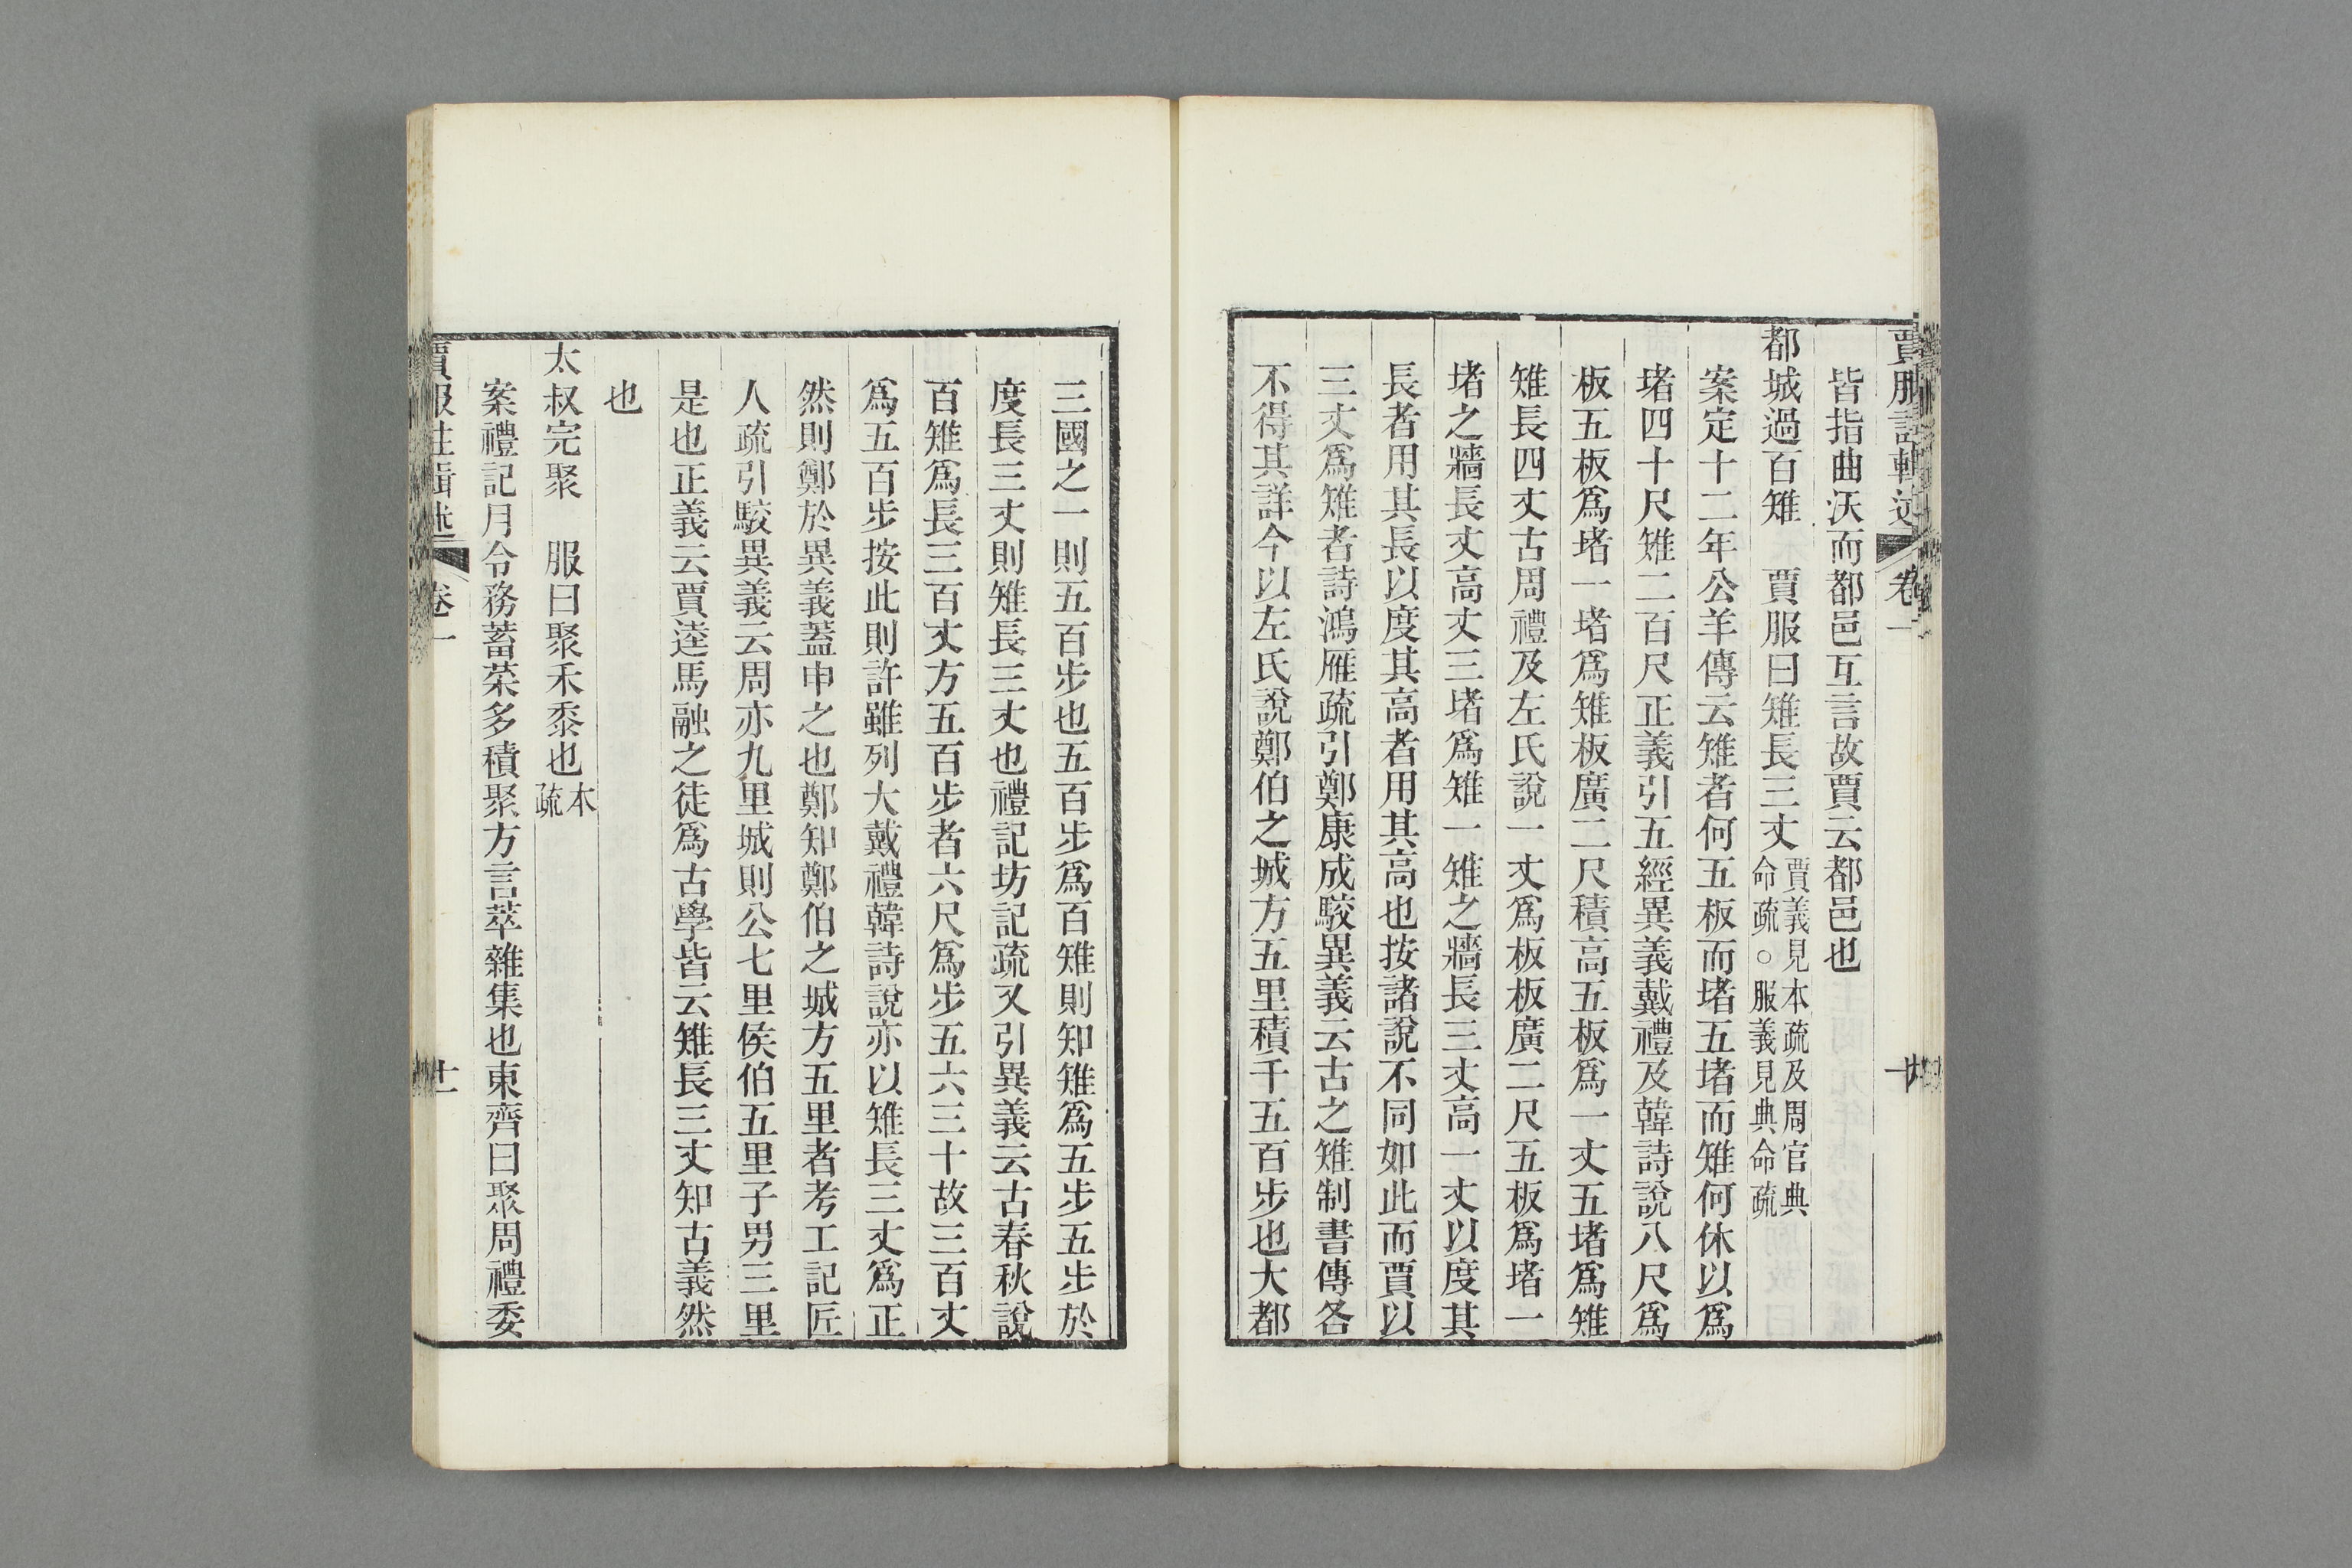 皆指曲沃而都邑互言故賈云都邑也
都城過百雉　賈服曰雉長三丈賈義見本疏及周官典命疏○服義見典命疏
案定十二年公羊傳云雉者何五板而堵五堵而雉何休以爲
堵四十尺雉二百尺正義引五經異義戴禮及韓詩說八尺爲
板五板爲堵一堵爲雉板廣二尺積高五板爲一丈五堵爲雉
雉長四丈古周禮及左氏說一丈爲板板廣二尺五板爲堵一
堵之牆長丈高丈三堵爲雉一雉之牆長三丈高一丈以度其
長者用其長以度其高者用其高也按諸說不同如此而賈以
三丈爲雉者詩鴻雁疏引鄭康成駮異義云古之雉制書傳各
不得其詳今以左氏說鄭伯之城方五里積千五百步也大都
三國之一則五百步也五百步爲百雉則知雉爲五步五步於
度長三丈則雉長三丈也禮記坊記疏又引異義云古春秋說
百雉爲長三百丈方五百步者六尺爲步五六三十故三百丈
爲五百步按此則許雖列大戴禮韓詩說亦以雉長三丈爲正
然則鄭於異義蓋申之也鄭知鄭伯之城方五里者考工記匠
人疏引駮異義云周亦九里城則公七里侯伯五里子男三里
是也正義云賈逵馬融之徒爲古學皆云雉長三丈知古義然
也
太叔完聚　服曰聚禾黍也本疏
案禮記月令務蓄菜多積聚方言萃雜集也東齊曰聚周禮委
卷一